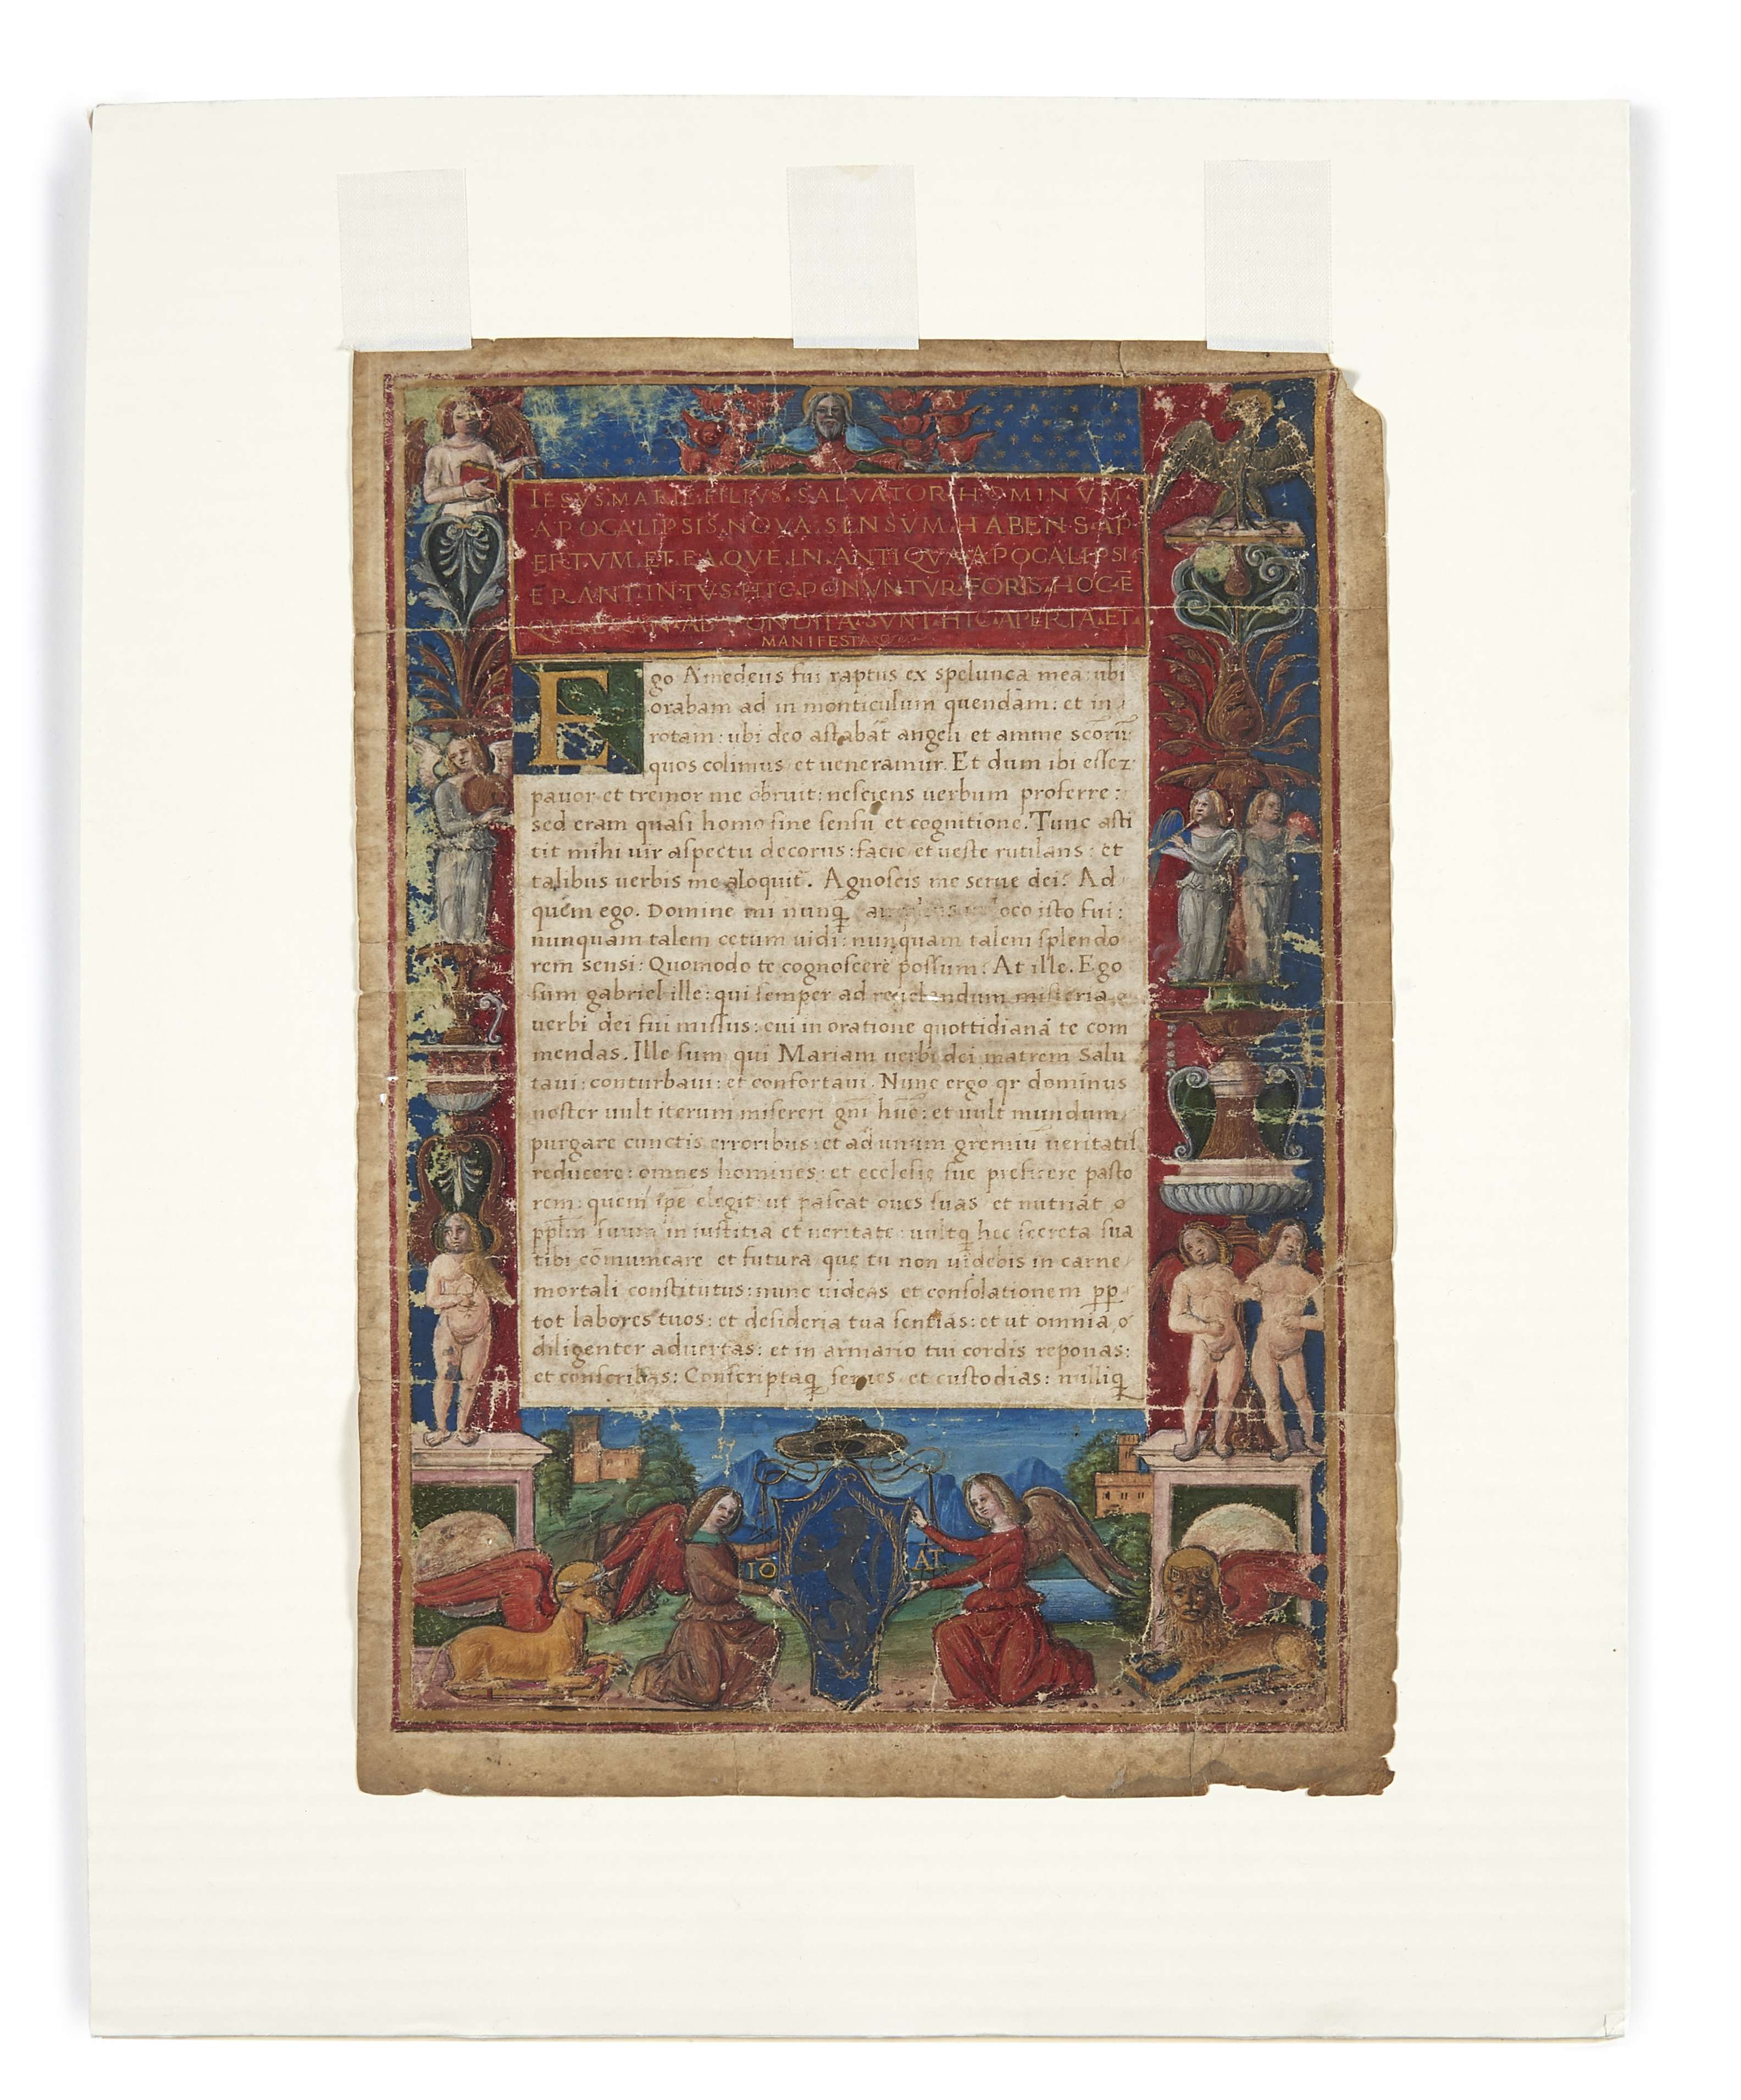 IESVS.MARIE.FILIVS.SALVATOR.HOMINVM.
APOCALIPSIS.NOVA.SENSVM.HABENS.AP
ERTVM.ET.EA.QVE.IN.ANTIQVA.APOCALIPSI
ERANT.INTVS.HIC.PONVNTVR.FORIS.HOC.Ē
QVE.ERANT.ABSCONDITA.SVNT.HIC.APERTA.ET.
MANIFESTA
Ego Amedeus fui raptus ex spelunca mea: ubi
orabam ad in monticulum quendam: et in
rotam: ubi deo astabāt angeli et anime scōrū
quos colimus et ueneramur. Et dum ibi essez
pauor et tremor me obruit: nesciens uerbum proferre:
sed eram quasi homo sine sensu et cognitione. Tunc asti
tit mihi uir aspectu decorus: facie et ueste rutilans: et
talibus uerbis me aloquit̄. Agnoscis me serue dei? Ad
quem ego. Domine mi nunq̄ loco isto fui:
nunquam talem cetum uidi: nunquam talem splendo
rem sensi: Quomodo te cognoscere possum? At ille. Ego
sum gabriel ille: qui semper ad reuelandum misteria
uerbi dei fui missus: cui in oratione quottidiana te com
mendas. Ille sum qui Mariam uerbi dei matrem Salu
taui: conturbaui: et confortaui. Nunc ergo qr dominus
noster uult iterum misereri gn̄i hūc: et uult mundum
purgare cunctis erroribus: et ad unum gremiū ueritatis
reducere: omnes homines: et ecclesię sue preficere pasto
rem: quem ip̄e elegit ut pascat oues suas et nutriāt
pp̄lm̄ suum in iustitia et ueritate: uultq̄ hec secreta sua
tibi cōmunicare et futura que tu non uidebis in carne
mortali constitutus: nunc uideas et consolationem pp̄
tot labores tuos: et desideria tua sentias: et ut omnia
diligenter aduertas: et in armario tui cordis reponas:
et conscribas: Conscriptaq̄ serues et custodias: nulliq̄
IŌ AT̄